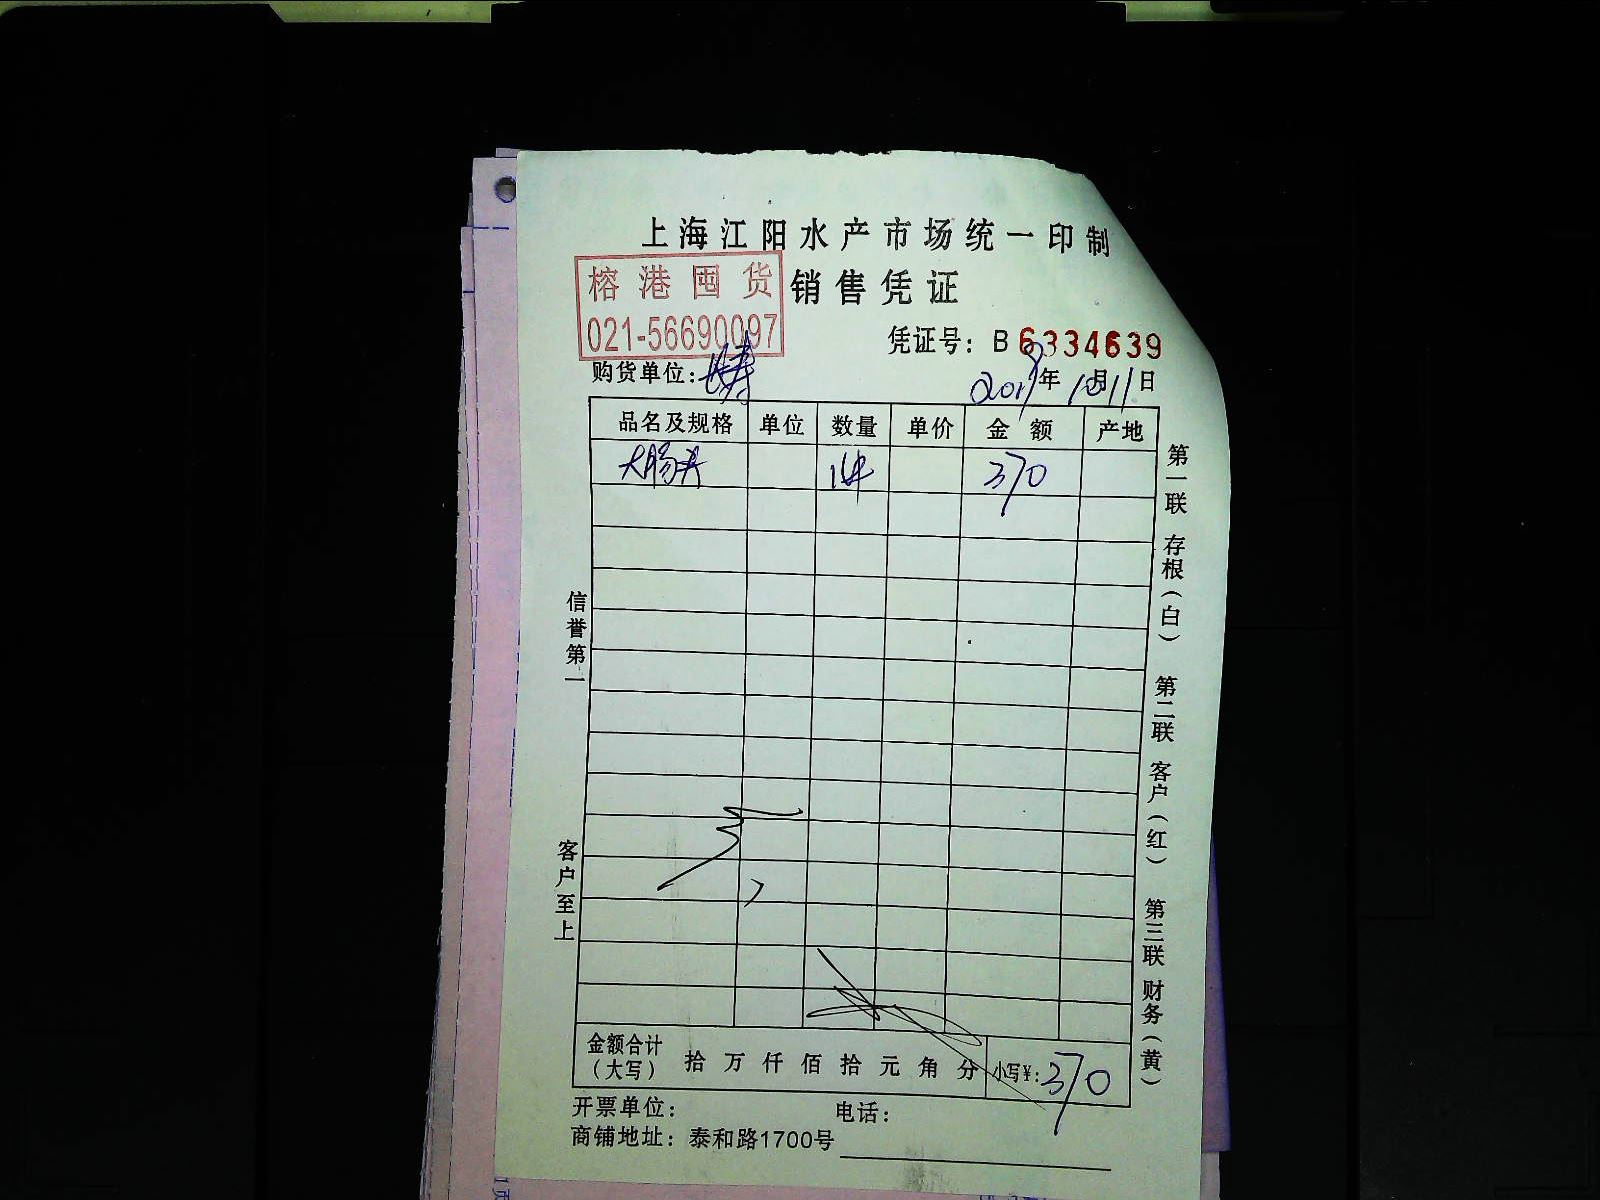 上海江阳水产市场统一印制
榕港囤货 销售凭证
021-56690097
凭证号: B 6334639
购货单位:
2018年10月11日
品名及规格 单位 数量 单价 金额 产地
大肠头 1件 370
信誉第一
客户至上
第一联 存根(白) 第二联 客户(红) 第三联 财务(黄)
金额合计(大写) 拾 万 仟 佰 拾 元 角 分 小写¥: 370
开票单位: 电话:
商铺地址: 泰和路1700号